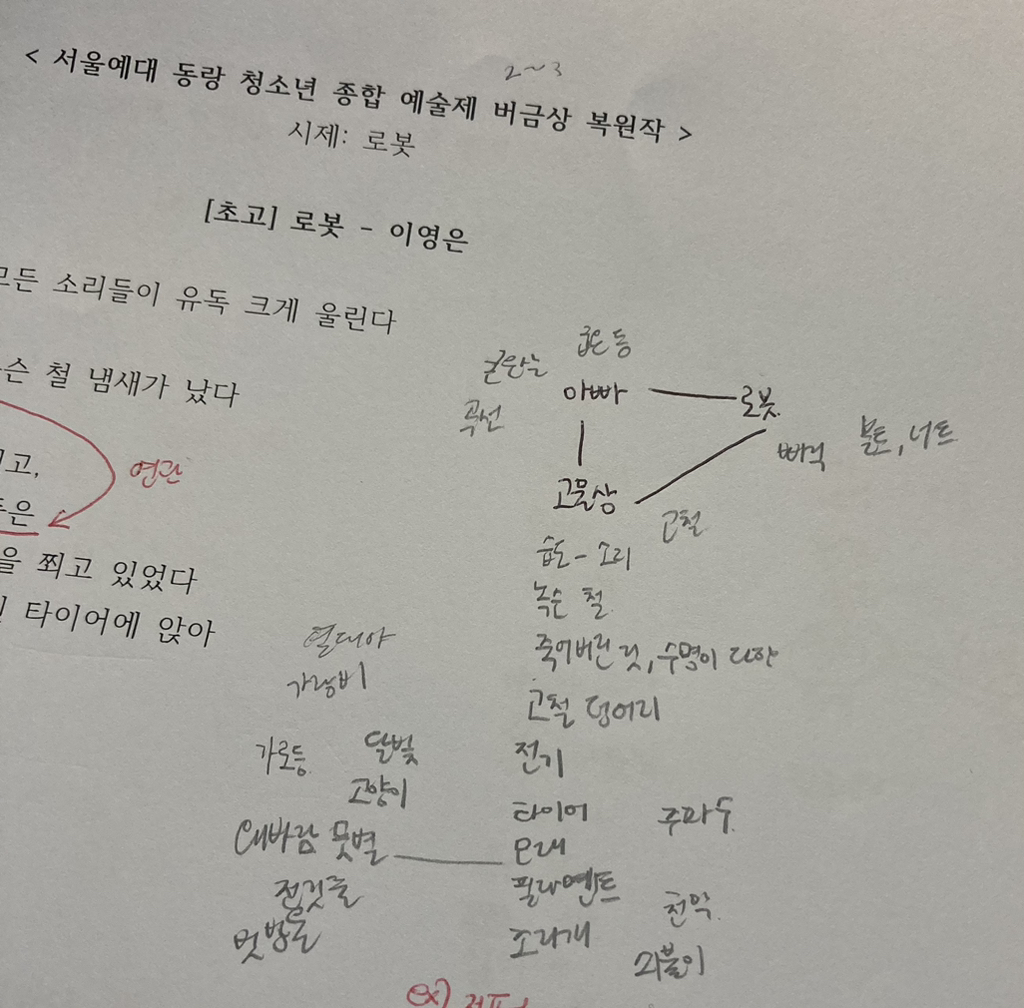 2~3
< 서울예대 동랑 청소년 종합 예술제 버금상 복원작 >
시제: 로봇
[초고] 로봇 - 이영은
모든 소리들이 유독 크게 울린다
굽은 등
아빠 로봇
곡선
슨 철 냄새가 났다
삐걱 볼트, 너트
고,
연관
고물상
고철
은
습도 - 소리
을 쬐고 있었다
녹슨 철
타이어에 앉아
열대야
죽어버린 것, 수명이 다한
가랑비
고철 덩어리
가로등 달빛
전기
고양이
타이어 주파수
바람 뭇별
모래
필라멘트
전깃줄
천막
소라개
쇠붙이
빗방울
ex)